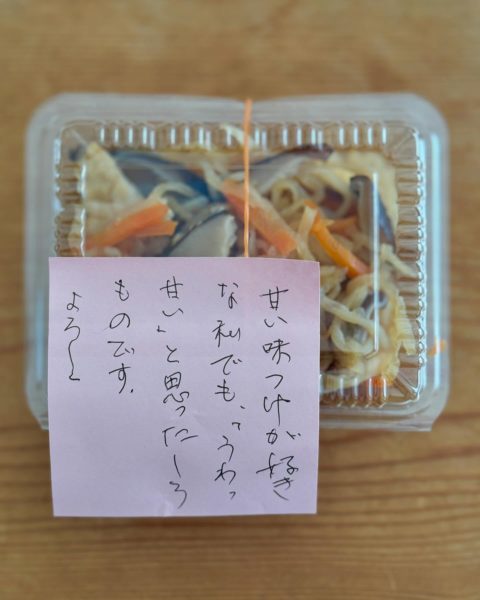 甘い味つけが好き
な私でも、「うわっ
甘い」と思ったしろ
ものです.
よろしく